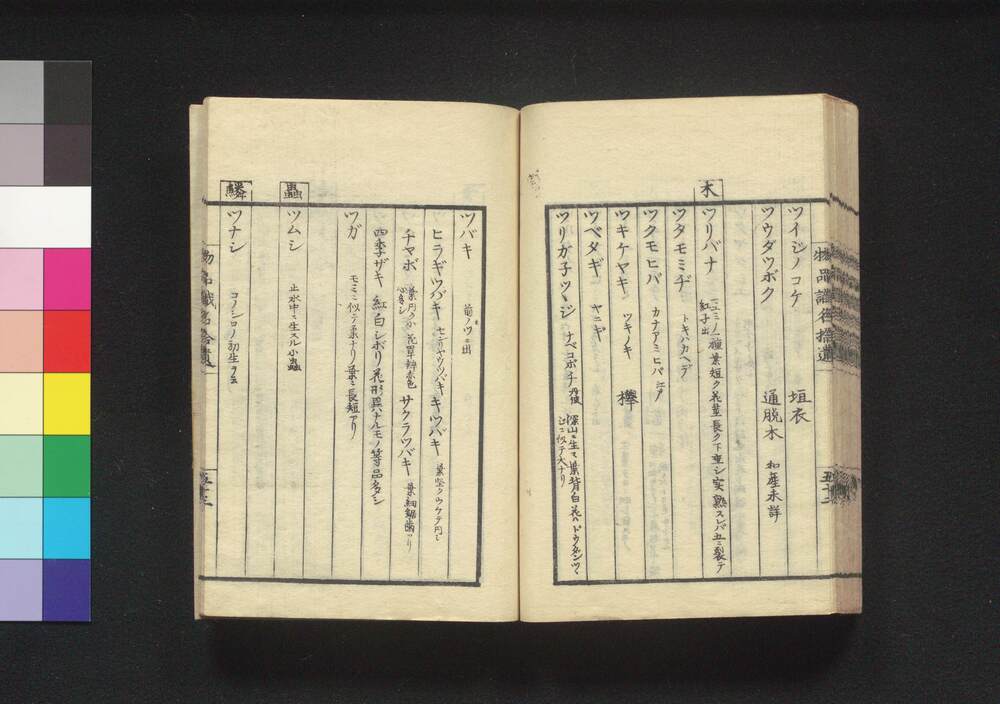 物品識名拾遺
ツイジノコケ 垣衣
ツウダツボク 通脱木 和産未詳
木
ツリバナ 一種葉短ク花莖長ク下垂シ実熟スレバ五ニ裂テ
紅子出
ツタモミヂ トキハカヘデ
ツクモヒバ カナアミヒバ 江戸
ツキケヤキ ツキノキ 欅
ツベタギ ヤニギ
ツリガ子ツヽジ ナベコボチ 丹波 深山ニ生ス葉背白花ハドウダンツヽ
ジニ似テ大ナリ
五十二
ツバキ 前ノウニ出
ヒラギツバキ キツバキ 葉堅クウケテ円シ
チヤボ 葉円ク小花單辨赤色 サクラツバキ 葉細鋸齒アリ
四季ザキ 紅白シボリ花形異ナルモノ等品多シ
ツガ モミニ似テ柔ナリノ葉ニ長短アリ
蟲
ツムシ 止水中ニ生スル小蟲
鱗
ツナシ コノシロノ初生ヲ云
物品識名拾遺